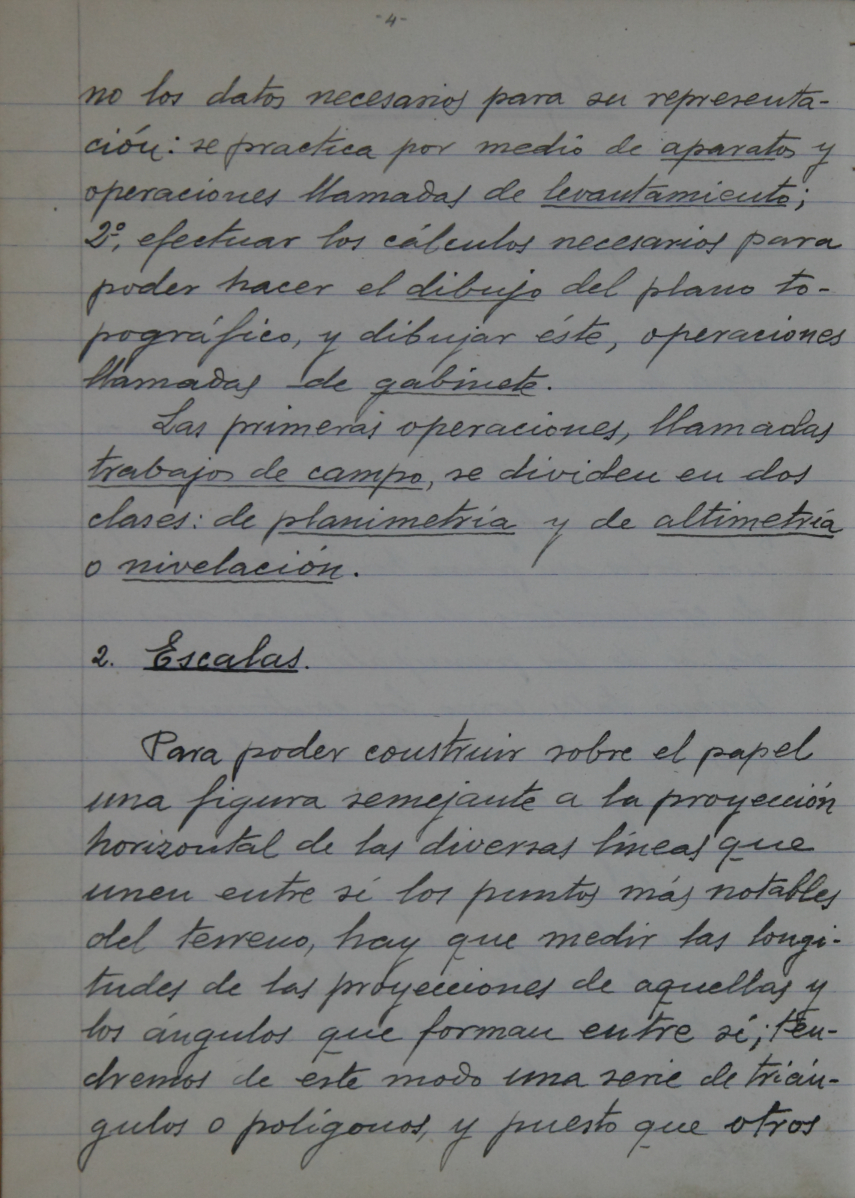 -4-
no los datos necesarios para su representa-
ción: se practica por medio de aparatos y
operaciones llamadas de levantamiento;
2º, efectuar los cálculos necesarios para
poder hacer el dibujo del plano to-
pográfico, y dibujar éste, operaciones
llamadas de gabinete.
Las primeras operaciones, llamadas
trabajos de campo, se dividen en dos
clases: de planimetría y de altimetría
o nivelación.
2. Escalas.
Para poder construir sobre el papel
una figura semejante a la proyección
horizontal de las diversas líneas que
unen entre sí los puntos más notables
del terreno, hay que medir las longi-
tudes de las proyecciones de aquellas y
los ángulos que forman entre sí; ten-
dremos de este modo una serie de trián-
gulos o polígonos, y puesto que otros